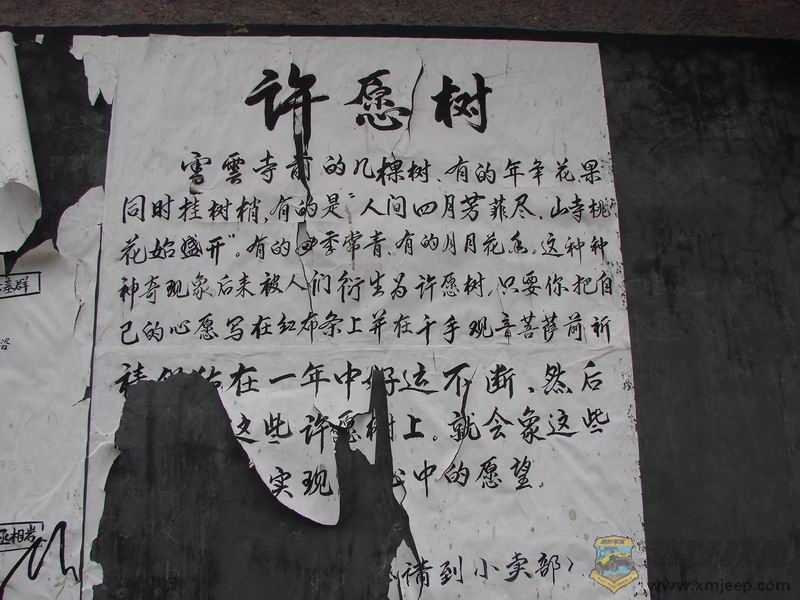 许愿树
雪雲寺前的几棵树、有的年年花果
同时挂树梢,有的是"人间四月芳菲尽、山寺桃
花始盛开"。有的四季常青、有的月月花香、这种种
神奇现象后来被人们衍生为许愿树,只要你把自
己的心愿写在红布条上并在千手观音菩萨前祈
在一年中好运不断、然后
这些许愿树上。就会象这些
实现心中的愿望。
请到小卖部)
墓群
丞相岩
www.xmjeep.com